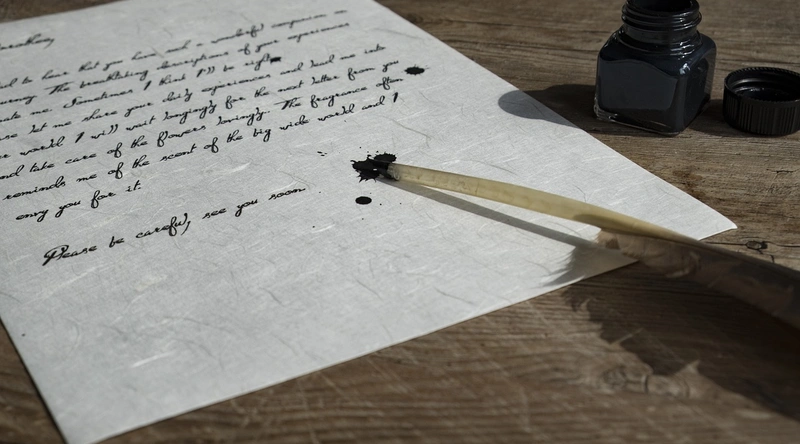 to hear that you have had a wonderful companion on
journey. The breathtaking descriptions of your experiences
me. Sometimes I think I'll be right
let me share your daily experiences and lead me into
world. I will wait longingly for the next letter from you
and take care of the flowers lovingly. The fragrance often
reminds me of the scent of the big wide world and I
envy you for it.
Please be careful, see you soon